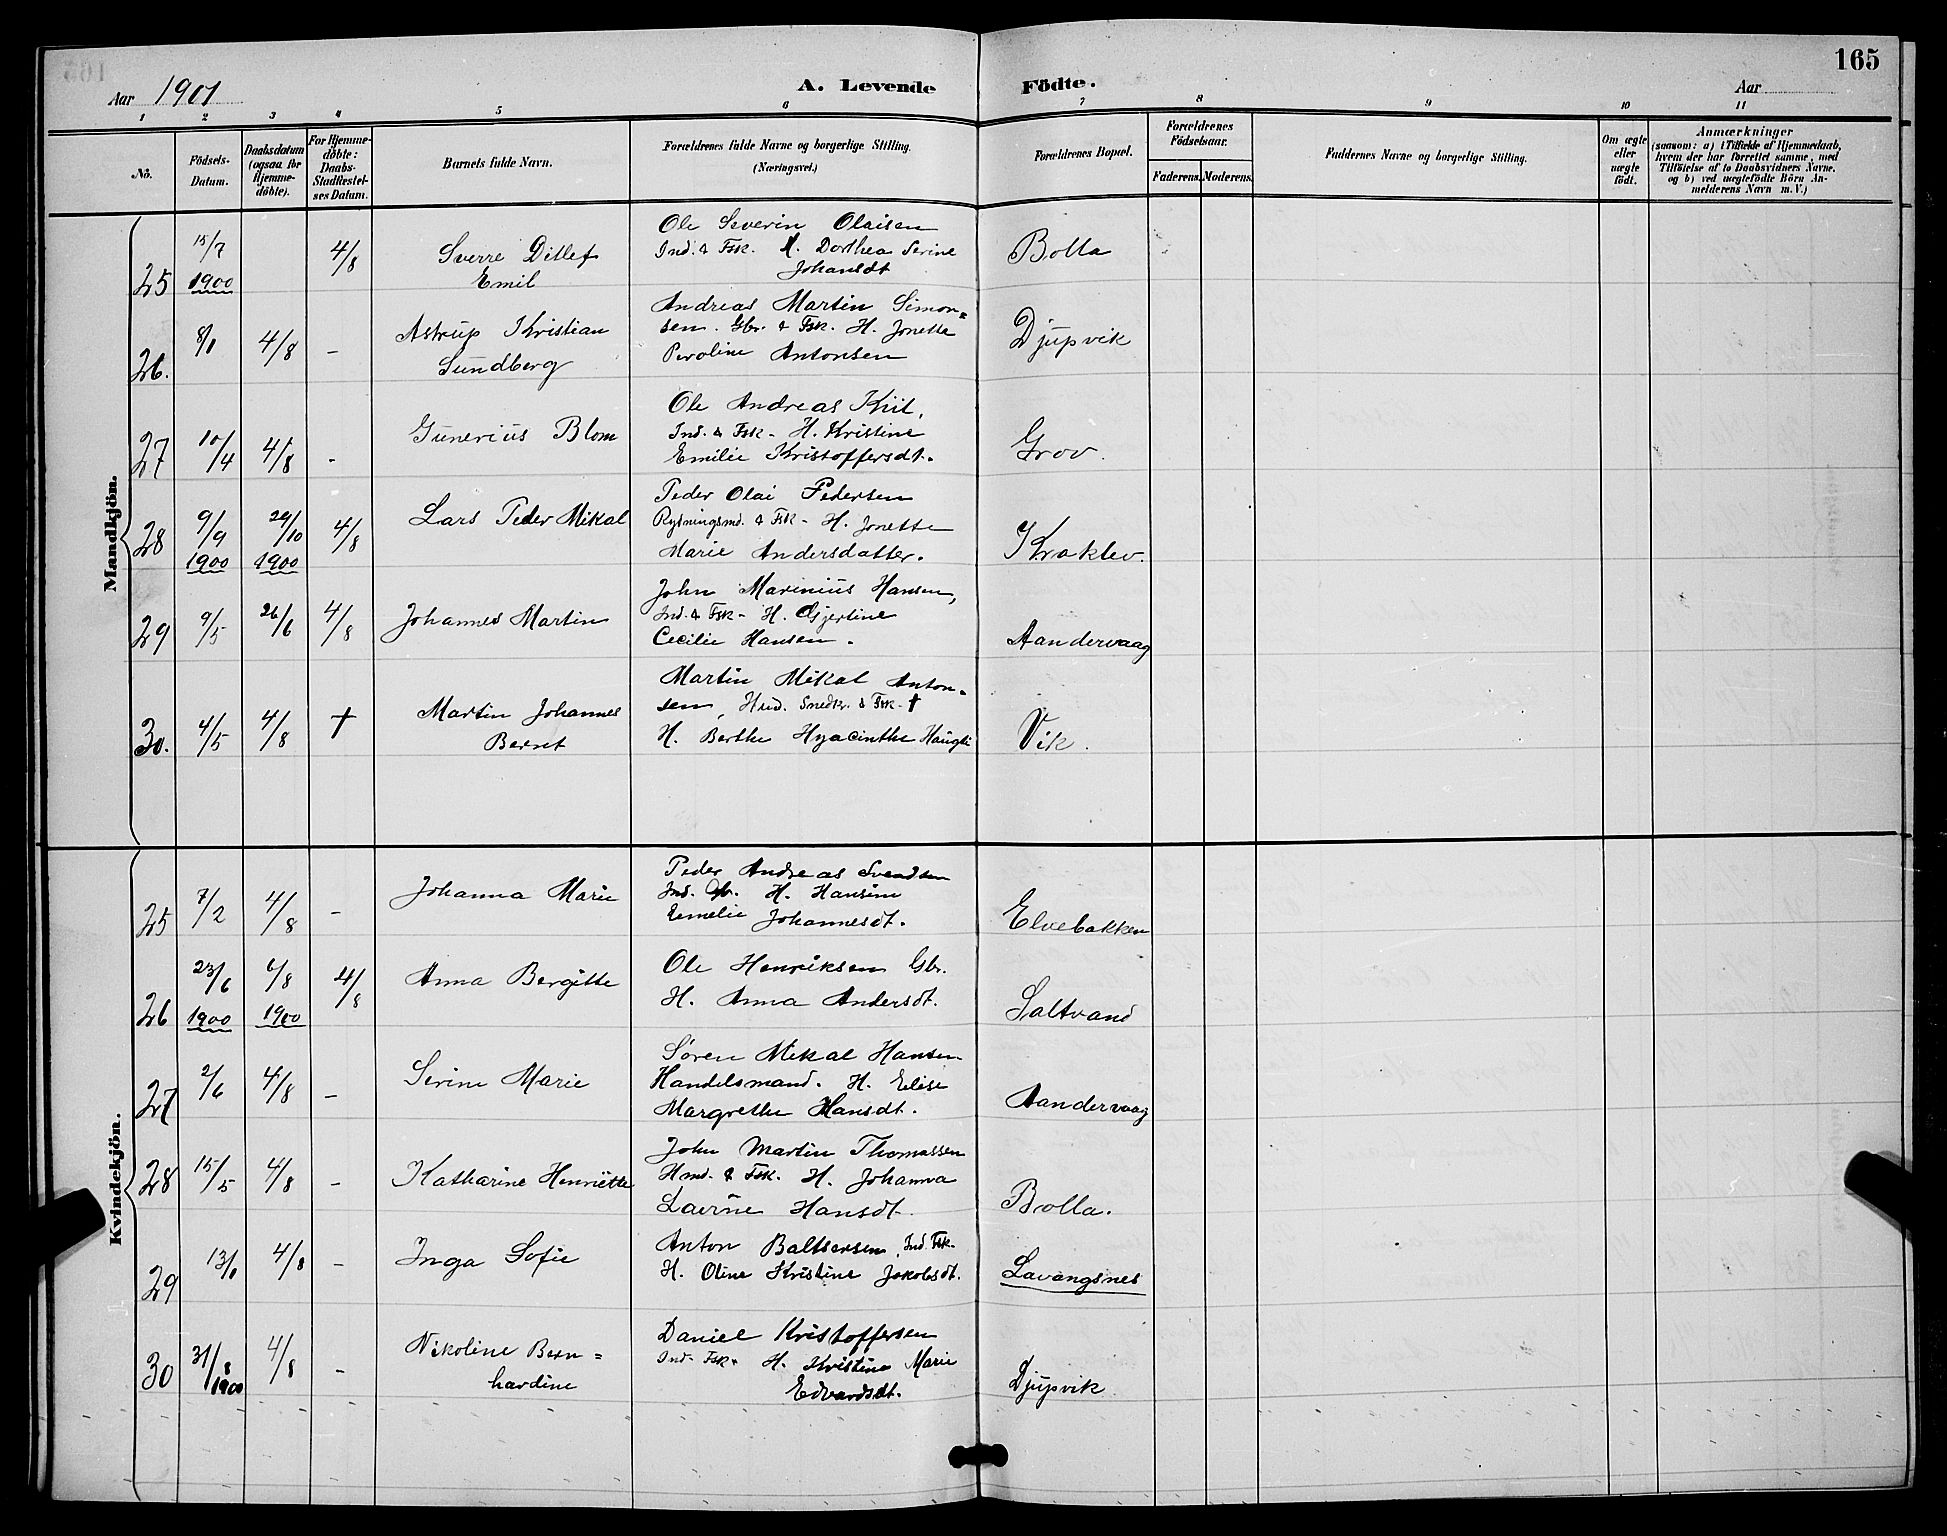 165
Aar 1901
A. Levende Födte.
Aar
1 2 3 4 5 6 7 8 9 10 11
No.
Födsels-Datum.
Daabsdatum (ogsaa for Hjemmedöbte).
For Hjemmedöbte: Daabs-Stadfæstelses Datum.
Barnets fulde Navn.
Forældrenes fulde Navne og borgerlige Stilling. (Næringsvei.)
Forældrenes Bopæl.
Forældrenes Födselsaar.
Faderens. Moderens.
Faddernes Navne og borgerlige Stilling.
Om ægte eller uægte födt.
Anmærkninger
(saasom: a) i Tilfælde af Hjemmedaab,
hvem der har forrettet samme, med
Tilföielse af to Daabsvidners Navne,
og b) ved uægtefödte Börn Anmelderens Navn m. V.)
Mandkjön.
25 15/7 1900 4/8 Sverre Ditlef Emil
Ole Severin Olaisen
Ind. & Fsk. H. Dorthea Serine
Johansdt
Bolla
26. 8/1 4/8 - Astrup Kristian Sundberg
Andreas Martin Simon=
sen. Gbr. & Fsk. H. Jonette
Peroline Antonsen
Djupvik
27 10/4 4/8 - Gunerius Blom
Ole Andreas Kiil,
Ind. & Fsk - H. Kristine
Emilie Kristoffersdt.
Grov.
28 9/9 1900 29/10 1900 4/8 Lars Peder Mikal
Peder Olai Pedersen
Rydningsmd. & Fsk - H. Jonette
Marie Andersdatter.
Kraklev.
29 9/5 26/6 4/8 Johannes Martin
John Marinius Hansen,
Ind. & Fsk - H. Gjertine
Cecilie Hansen.
Aandervaag
30. 4/5 4/8 † Martin Johannes Bernt
Martin Mikal Anton-
sen, Hud. Snedkr. & Fsk - †
H. Berthe Hyacinthe Haugli
Vik.
Kvindekjön.
25 7/2 4/8 - Johanna Marie
Peder Andreas Svendsen
Ind. H. Hansine
Emelie Johannesdt.
Elvebakken
26 23/6 1900 6/8 1900 4/8 Anna Bergitte
Ole Henriksen Gbr.
H. Anna Andersdt.
Saltvand
27 2/6 4/8 - Serine Marie
Søren Mikal Hansen
Handelsmand. H. Elise
Margrethe Hansdt.
Aandervaag
28 15/5 4/8 - Katharine Henriette
John Martin Thomassen
Hmd. & Fsk. H. Johanna
Laerne Hansdt.
Bolla.
29 13/1 4/8 - Inga Sofie
Anton Baltsersen, Ind. Fsk.
H. Oline Kristine Jakobsdt.
Lavangsnes
30 31/8 1900 4/8 - Nikoline Bern=
hardine
Daniel Kristoffersen
Ind. Fsk. H. Kristine Marie
Edvardsdt.
Djupvik